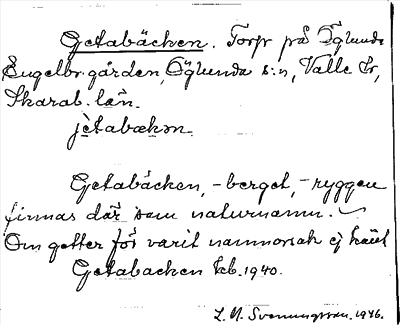 Getabäcken. Torp på Öglunda
Engelbr.gården, Öglunda s:n, Valle hr,
Skarab. län.
jètabakən.
Getabäcken, -berget, -ryggen
finnas där som naturnamn.
Om getter för varit namnorsak ej känt
Getabacken kb. 1940.
L. N. Svenungsson. 1946.